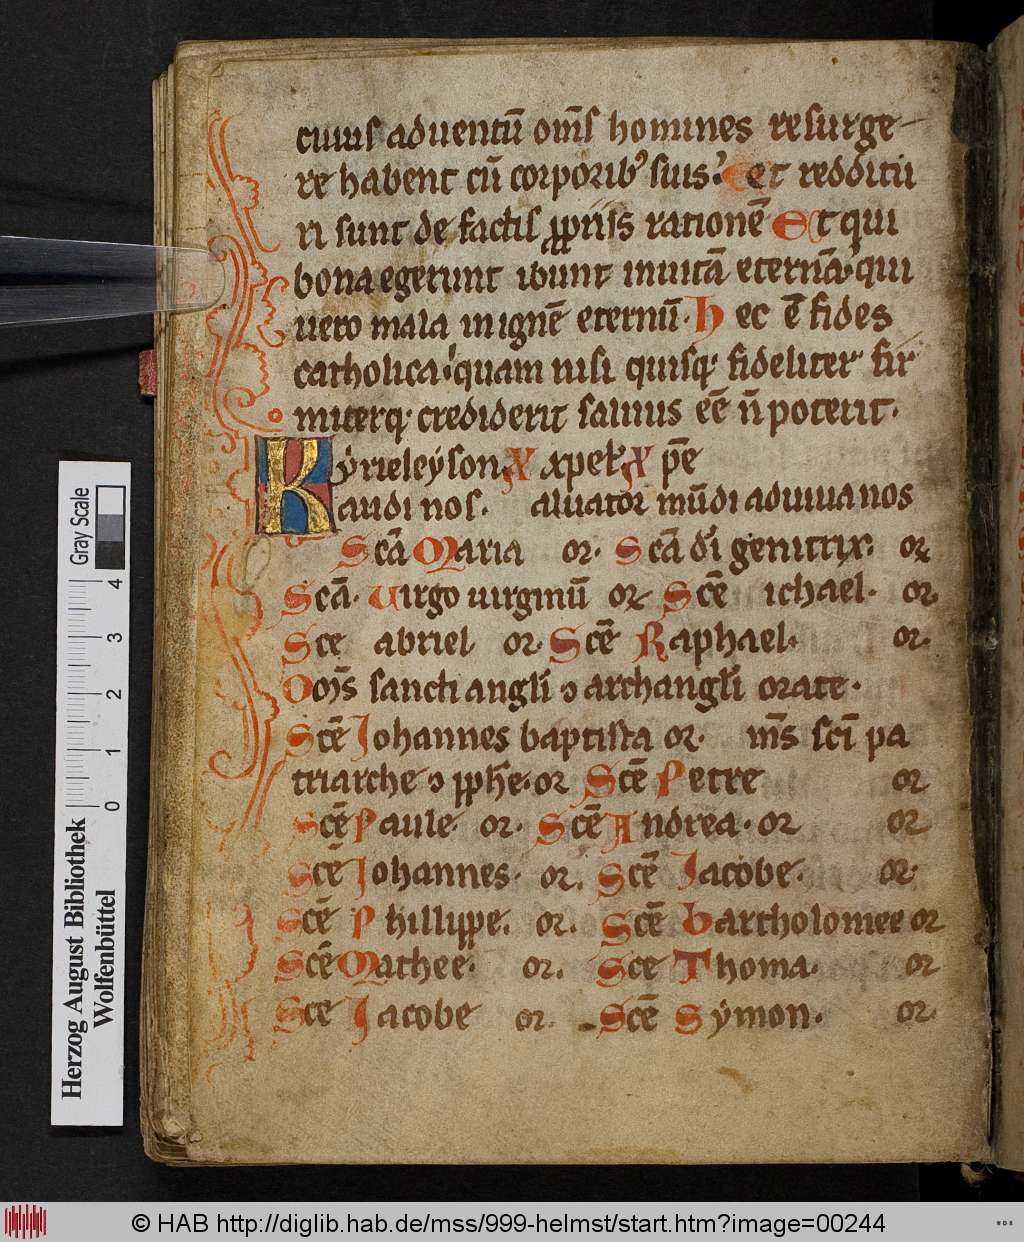 cuius aduentū om̄s homines resurge-
re habent cū corporibꝰ suis. et reddituu
ri sunt de factis ꝓpriis rationē Et qui
bona egerunt ibunt in uitā eternā. qui
uero mala in ignē eternū. H ec ē fides
catholica. quam nisi quisqꝫ fideliter fir
miterqꝫ crediderit saluus eē n̄ poterit.
Kẏrieleẏson. X xpeł X pē
audi nos. aluator mūdi adiuua nos
Scā Maria or. Scā dī genitrix. or
Scā. Uirgo uirginū or Scē ichael. or.
Sce abriel. or. Scē Raphael. or.
Oom̄s sancti angłi ↄ archangłi orate.
Scē Johannes baptista or. m̄s scī pa
triarche ↄ ꝓph̄e. or Scē Petre or
Scē Paule. or. Scē Andrea. or or
Scē Johannes. or. Scē Jacobe. or.
Scē Phillippe. or. Scē Bartholomee or
Scē Mathee. or. Sce Thoma. or
Sce Jacobe or. Scē Sẏmon. or.
Gray Scale
4 3 2 1 0
Herzog August Bibliothek
Wolfenbüttel
© HAB http://diglib.hab.de/mss/999-helmst/start.htm?image=00244